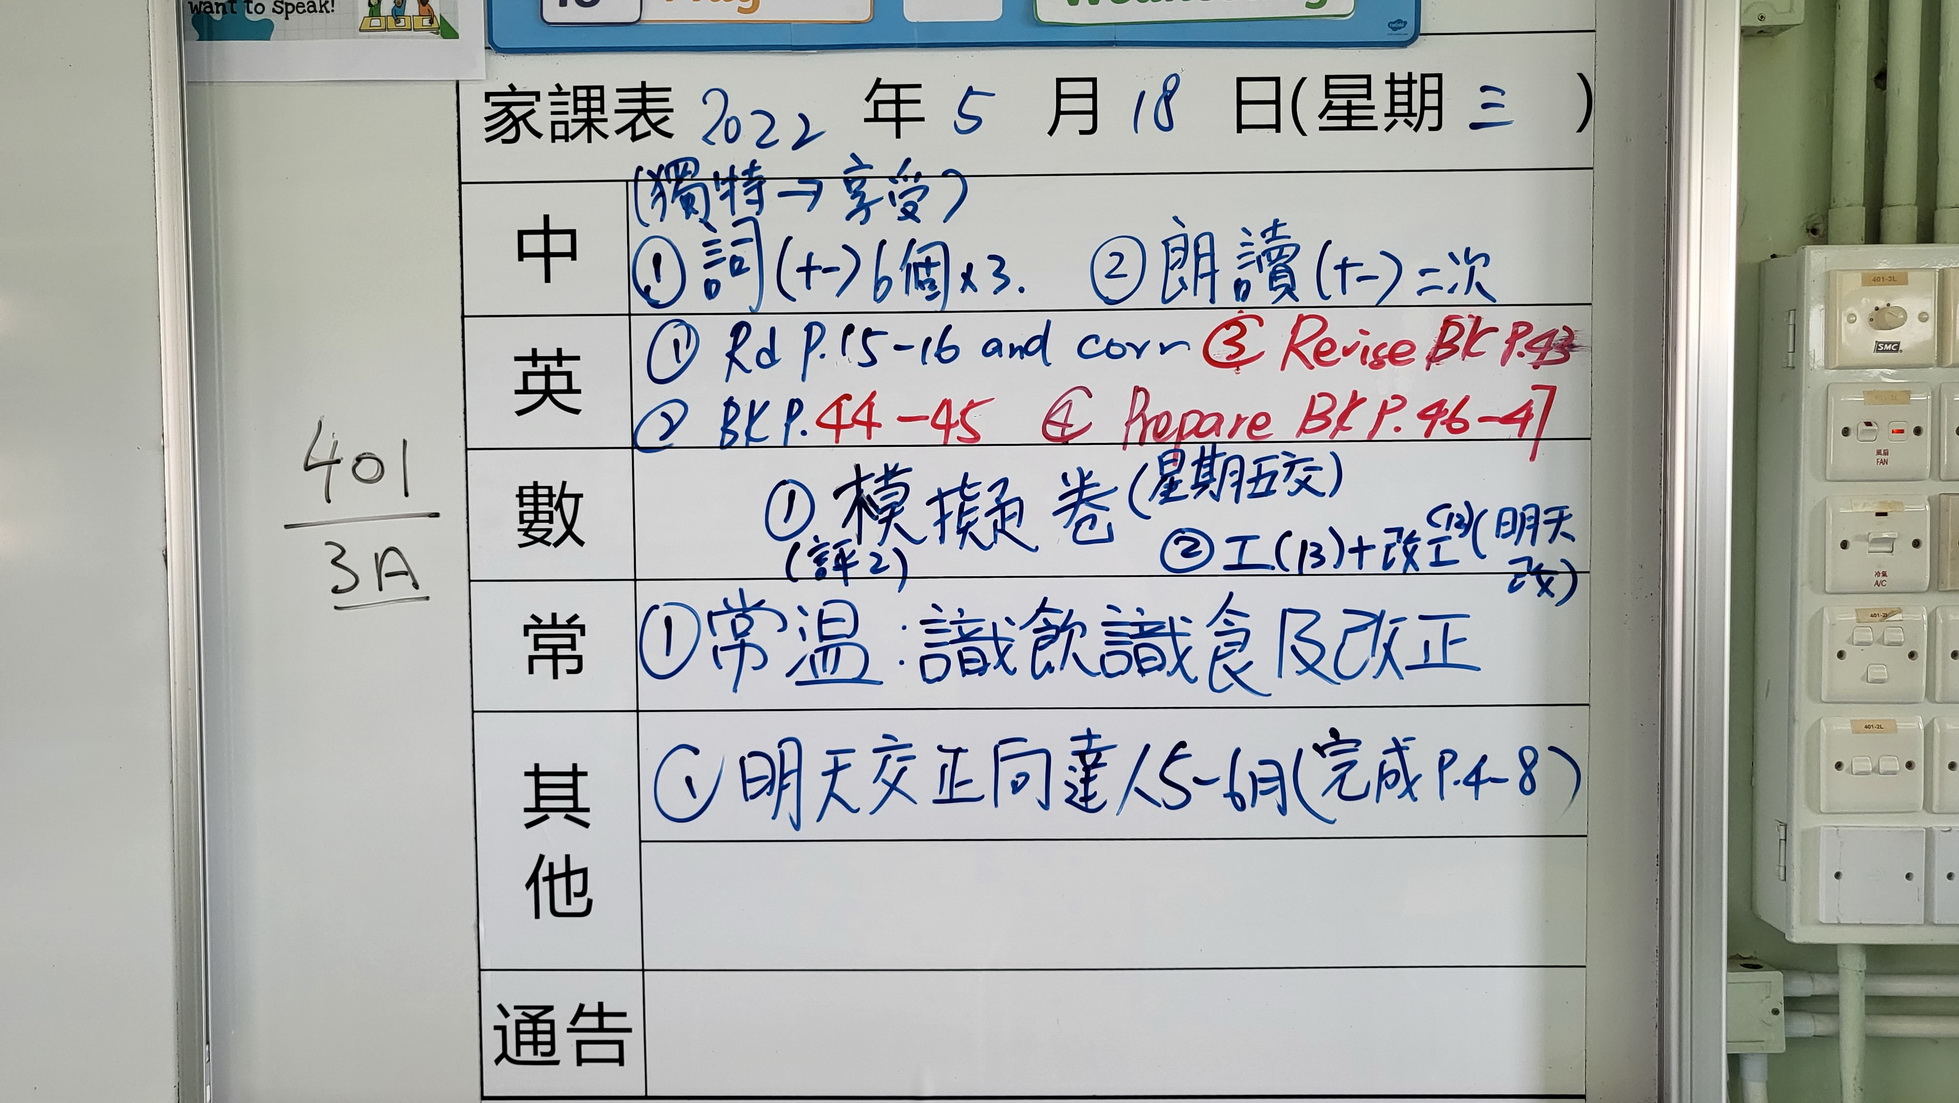 want to speak!
家課表 2022 年 5 月 18 日(星期 三 )
中
(獨特→享受)
①詞(十一)6個×3. ②朗讀(十一)二次
英
① Rd P.15-16 and corr ③ Revise BK P.43
② BK P.44-45 ④ Prepare BK P.46-47
數
①模擬卷(星期五交)
(評2)
②工(13)+改工(12)(明天
改)
常
①常温:識飲識食及改正
其
他
①明天交正向達人5-6月(完成P.4-8)
通告
401
3A
401-3L
SMC
風扇
FAN
冷氣
A/C
401-2L